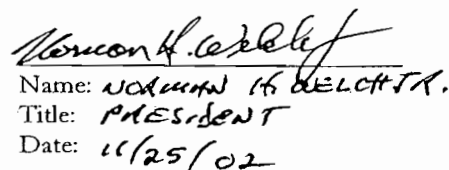 Norman H. Welch Jr
Name: NORMAN H. WELCH JR.
Title: PRESIDENT
Date: 11/25/02